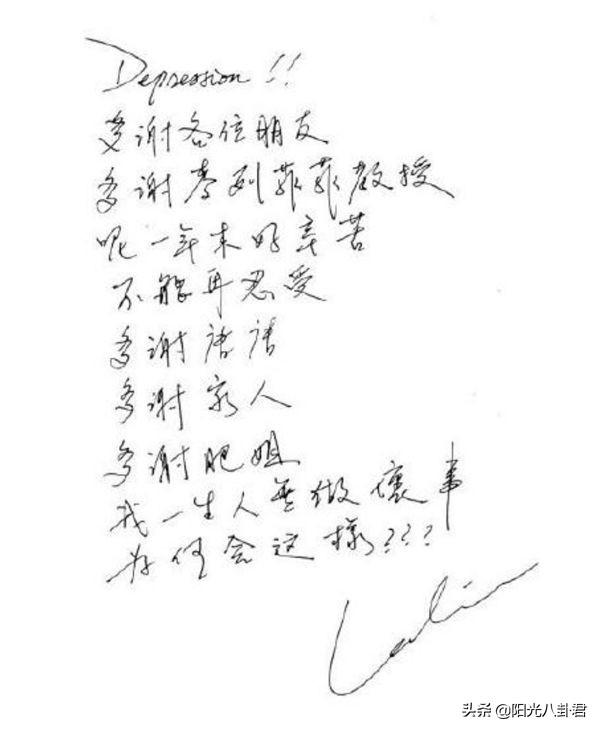 Depression !!
多谢各位朋友
多谢李列菲菲教授
呢一年来好辛苦
不能再忍受
多谢唐唐
多谢家人
多谢肥姐
我一生人無做壞事
为何会这樣???
头条 @阳光八卦君